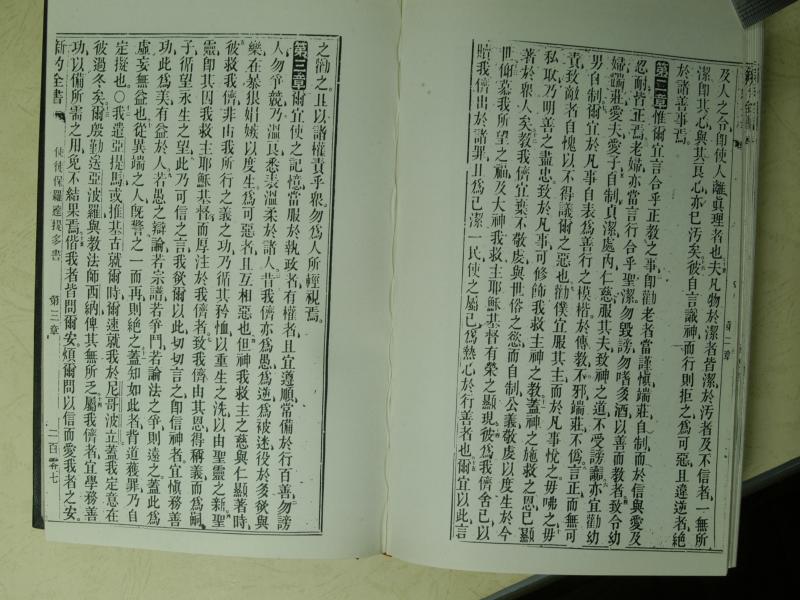 及人之令卽使人離眞理者也夫凡物於潔者皆潔於污者及不信者一無所
潔卽其心與其良心亦已污矣彼自言識神而行則拒之爲可惡且違逆者絕
於諸善事焉
第二章惟爾宜言合乎正教之事卽勸老者當謹愼端莊自制而於信與愛及
忍耐皆正焉老婦亦當言行合乎聖潔勿毀謗勿嗜多酒以善而教者致令幼
婦端莊愛夫愛子自制貞潔處內仁慈服其夫致神之道不受謗讟亦宜勸幼
男自制爾宜於凡事自表爲善行之模楷於傳教不邪端莊不僞言正而無可
責致敵者自愧以不得議爾之惡也勸僕宜服其主而於凡事悅之毋咈之毋
私取乃明善之盡忠致於凡事可修飾我救主神之教蓋神之施救之恩已顯
著於衆人矣教我儕宜棄不敬虔與世俗之慾而自制公義敬虔以度生於今
世仰慕我所望之福及大神我救主耶穌基督有榮之顯現彼爲我儕舍己以
贖我儕出於諸罪且爲己潔一民使之屬己爲熱心於行善者也爾宜以此言
之勸之且以諸權責乎衆勿爲人所輕視焉
第三章爾宜使之記憶當服於執政者有權者且宜遵順常備於行百善勿謗
人勿爭競乃溫良悉表溫柔於諸人昔我儕亦爲愚爲逆爲被迷役於多欲與
樂在暴狠娼嫉以度生爲可惡者且互相惡也但神我救主之慈與仁顯著時
彼救我儕非由我所行之義之功乃循其矜恤以重生之洗以由聖靈之新聖
靈卽其因我救主耶穌基督而厚注於我儕者致我儕由其恩得稱義而爲嗣
子循望永生之望此乃可信之言我欲爾以此切切言之卽信神者宜愼務善
功此爲美有益於人若愚之辯論若宗譜若爭鬥若論法之爭則遠之蓋此爲
虛妄無益也從異端之人旣警之一而再則絕之蓋知如此者背道獲罪乃自
定擬也○我遣亞提馬或推基古就爾時爾速就我於尼哥波立蓋我定意在
彼過冬矣爾殷勤送亞波羅與教法師西納俾其無所乏屬我儕者宜學務善
功以備所需之用免不結果焉偕我者皆問爾安煩爾問以信而愛我者之安
新約全書 使徒保羅達提多書 第三章